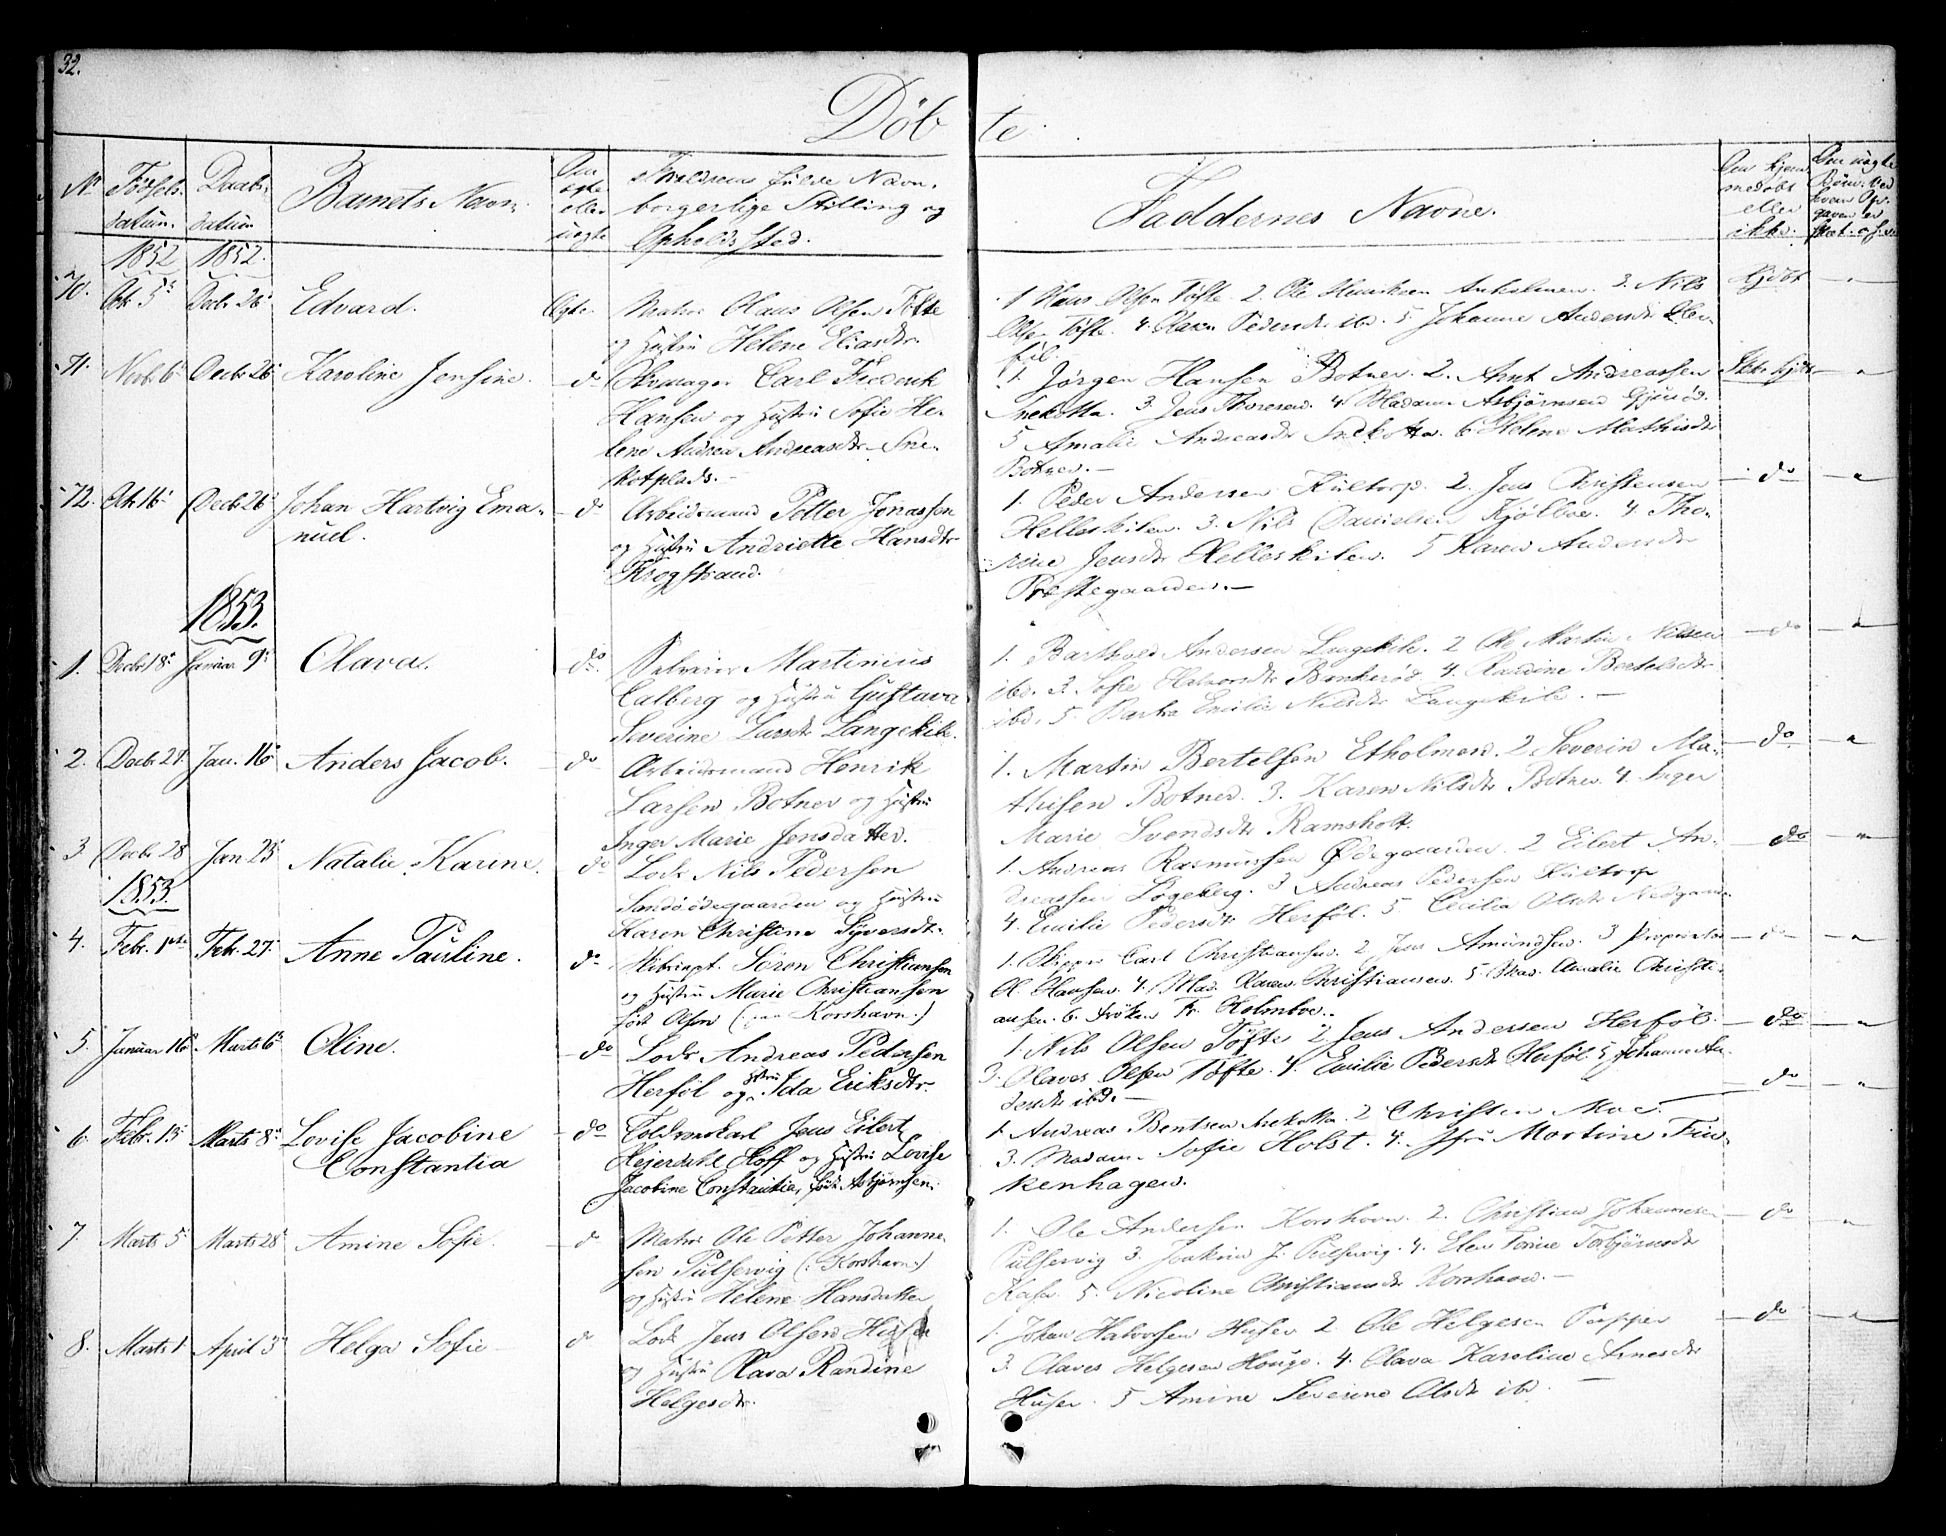 32.
Døbte.
No
Fødsels-
datum.
Daabs-
datum
Barnets Navn.
Om
ægte
eller
uægte
Forældrenes fulde Navn,
borgerlige Stilling og
Opholdssted.
Faddernes Navne.
Om hjem-
medøbt
eller
ikke.
1852 1852.
70. Octr 5 Decbr 26 Edvard. Ægte. Matros Olaus Olsen Tofte
og Hustru Helene Eliasdtr.
1 Hans Olsen Tofte 2. Ole Henriksen Ankolmen. 3. Nils
Olsen Tofte. 4. Olava Pedersdtr ibd. 5 Johanne Andersdtr
Hjdøbt
71. Novbr 6 Decbr 26 Karoline Jensine. do Skomager Carl Frederik
Hansen og Hustru Sofie He-
lene Andrea Andreasdtr Sne-
kotplads.
1. Jørgen Hansen Botner. 2. Arnt Andreassen
Snekotta. 3. Jens Thoresen. 4 Madam Asbjørnsen
5 Amalie Andreasdtr Snekotta. 6 Helene Mathisdtr
Botner.
Ikke hjdøbt
72. Octr 16 Decbr 26 Johan Hartvig Ema-
nuel.
do Arbeidsmand Petter Jonassen
og Hustru Andriette Hansdtr
Krogstrand.
1. Peder Andersen Kultorp. 2. Jens Christensen
Helleskilen. 3. Nils Danielsen Kjølboe. 4. Tho-
rine Jensdtr Helleskilen. 5 Karen Andersdtr
Prestegaarden.
do
1853.
1. Decbr 18 Januar 9 Olava. do Martinius
Calberg og Hustru Gustava
Severine Larsdtr Langekile.
1. Barthold Andersen Langekile. 2 Ole Martin Nilsen
ibd. 3. Sofie Halvorsdtr 4. Randine Bertelsdtr
ibd. 5. Emilie Nilsdtr Langekile.
do
2. Decbr 27 Jan. 16 Anders Jacob. do Arbeidsmand Henrik
Larsen Botner og Hustru
Inger Marie Jensdatter.
1. Martin Bertelsen Etholmen. 2 Severin Ma-
thisen Botner. 3. Karen Nilsdtr Botner. 4. Inger
Marie Svendsdtr Ramsholt.
do
3 Decbr 28 Jan 23 Natalie Karine. do Lods Nils Pedersen
Sandöödegaarden og Hustru
Karen Christine Syversdtr.
1. Andreas Rasmussen Ødegaarden. 2 Eilert An-
dreassen Løgeberg. 3 Andreas Pedersen Kultorp
4. Emilie Pedersdtr Herføl. 5. Cecilia Olsdtr
do
1853.
4. Febr. 1ste Febr. 27 Anne Pauline. do Skibscapt. Søren Christiansen
og Hustru Marie Christiansen
født Olsen (Korshavn.)
1. Skipper Carl Christiansen. 2 Jens Amundsen. 3 Proprietær
O. Hansen. 4. Mad. Karen Christiansen. 5. Mad. Amalie Christi-
ansen. 6. Frøken Fr. Holmboe.
do
5. Januar 16 Marts 6 Oline. do Lods Andreas Pedersen
Herføl og Hustru Ida Eriksdtr.
1. Nils Olsen Tofte 2 Jens Andersen Herføl.
3. Olaves Olsen Tofte. 4. Emilie Pedersdtr Herføl. 5 Johanne An-
dersdtr ibd.
do
6. Febr. 15 Marts 8 Lovise Jacobine
Constantia
do Toldoverkarl Jens Eilert
Heierdahl Hoff og Hustru Lovise
Jacobine Constantia, født Asbjørnsen.
1. Andreas Bentsen Snekotta. 2 Christen Moe.
3. Madam Sofie Holst. 4. Jfru Martine Fin-
kenhagen.
do
7. Marts 5 Marts 28 Amine Sofie. do Matros Ole Petter Johanne-
sen Pulservig (: Korshavn:)
og Hustru Helene Hansdatter
1. Ole Andersen Korshavn. 2. Christian Johannesen
Pulservig 3. Joakim J. Pulservig. 4. Elen Torine Torbjørnsdtr
5. Nicoline Christiansdtr Korshavn.
do
8. Marts 1 April 3 Helga Sofie do Lods Jens Olsen Huser
og Hustru Olava Randine
Helgesdtr.
1. Johan Halvorsen Huser 2. Ole Helgesen Papper
3. Olaves Helgesen Houge. 4. Olava Karoline Arnesdtr
Huser. 5 Amine Severine Olsdtr ibd.
do